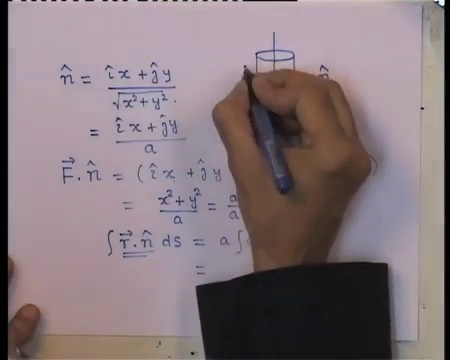 n̂ = (îx + ĵy) / √(x² + y²)
= (îx + ĵy) / a
F⃗ . n̂ = (îx + ĵy
= (x² + y²) / a = a / a
∫ r⃗ . n̂ ds = a ∫
=